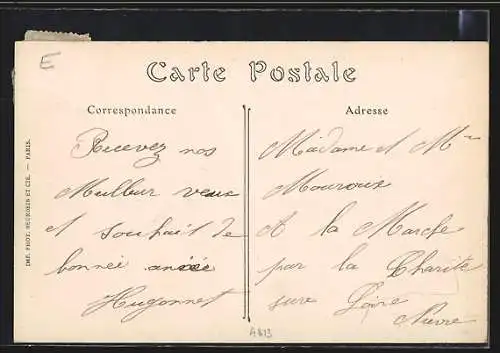 E
Carte Postale
Correspondance
Adresse
Recevez nos
Meilleur veux
et souhait de
bonnée année
Hugonnet
Madame et Mr
Mouroux
A la Marche
par la Charite
sure Loire
Nièvre
IMP. PHOT. NEURDEIN ET CIE. — PARIS.
A813